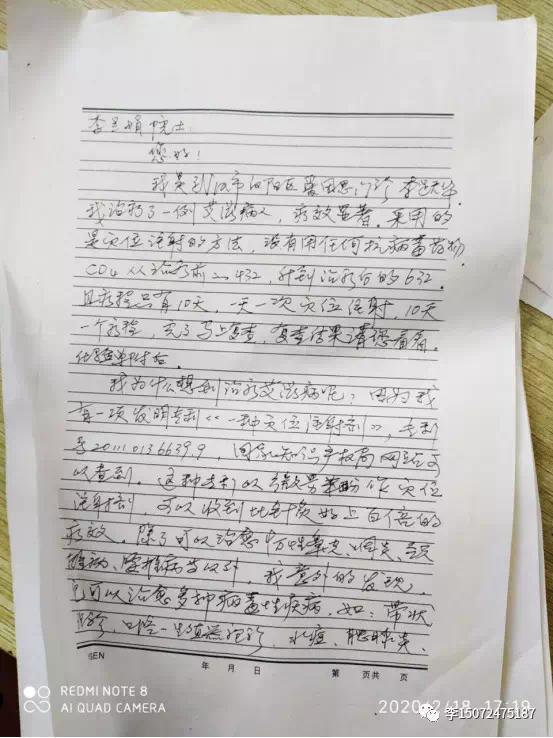 李兰娟院士:
您好!
我是武汉市汉阳区 门诊 李
我治疗了一例艾滋病人，疗效显著。采用的
是穴位注射的方法，没有用任何抗病毒药物.
CD4从治疗前的432，升到治疗后的632.
且疗程只有10天，一天一次穴位注射，10天
一个疗程，完了马上复查，复查结果请您看看。
化验单附后.
我为什么想到治疗艾滋病呢？因为我
有一项发明专利《一种穴位注射剂》，专利
号201110136639.9，国家知识产权局网站可
以查到. 这种专利以 作穴位
注射剂，可以收到比针灸好上百倍的
疗效，除了可以治愈 鼻炎、咽炎、颈
椎病、腰椎病等以外，我意外的发现，
它可以治愈多种病毒性疾病，如：带状
疱疹、口唇 生殖器疱疹、水痘、腮腺炎、
SEN
年 月 日
第 页共 页
REDMI NOTE 8
AI QUAD CAMERA
2020/2/18 17:19
李15072475187